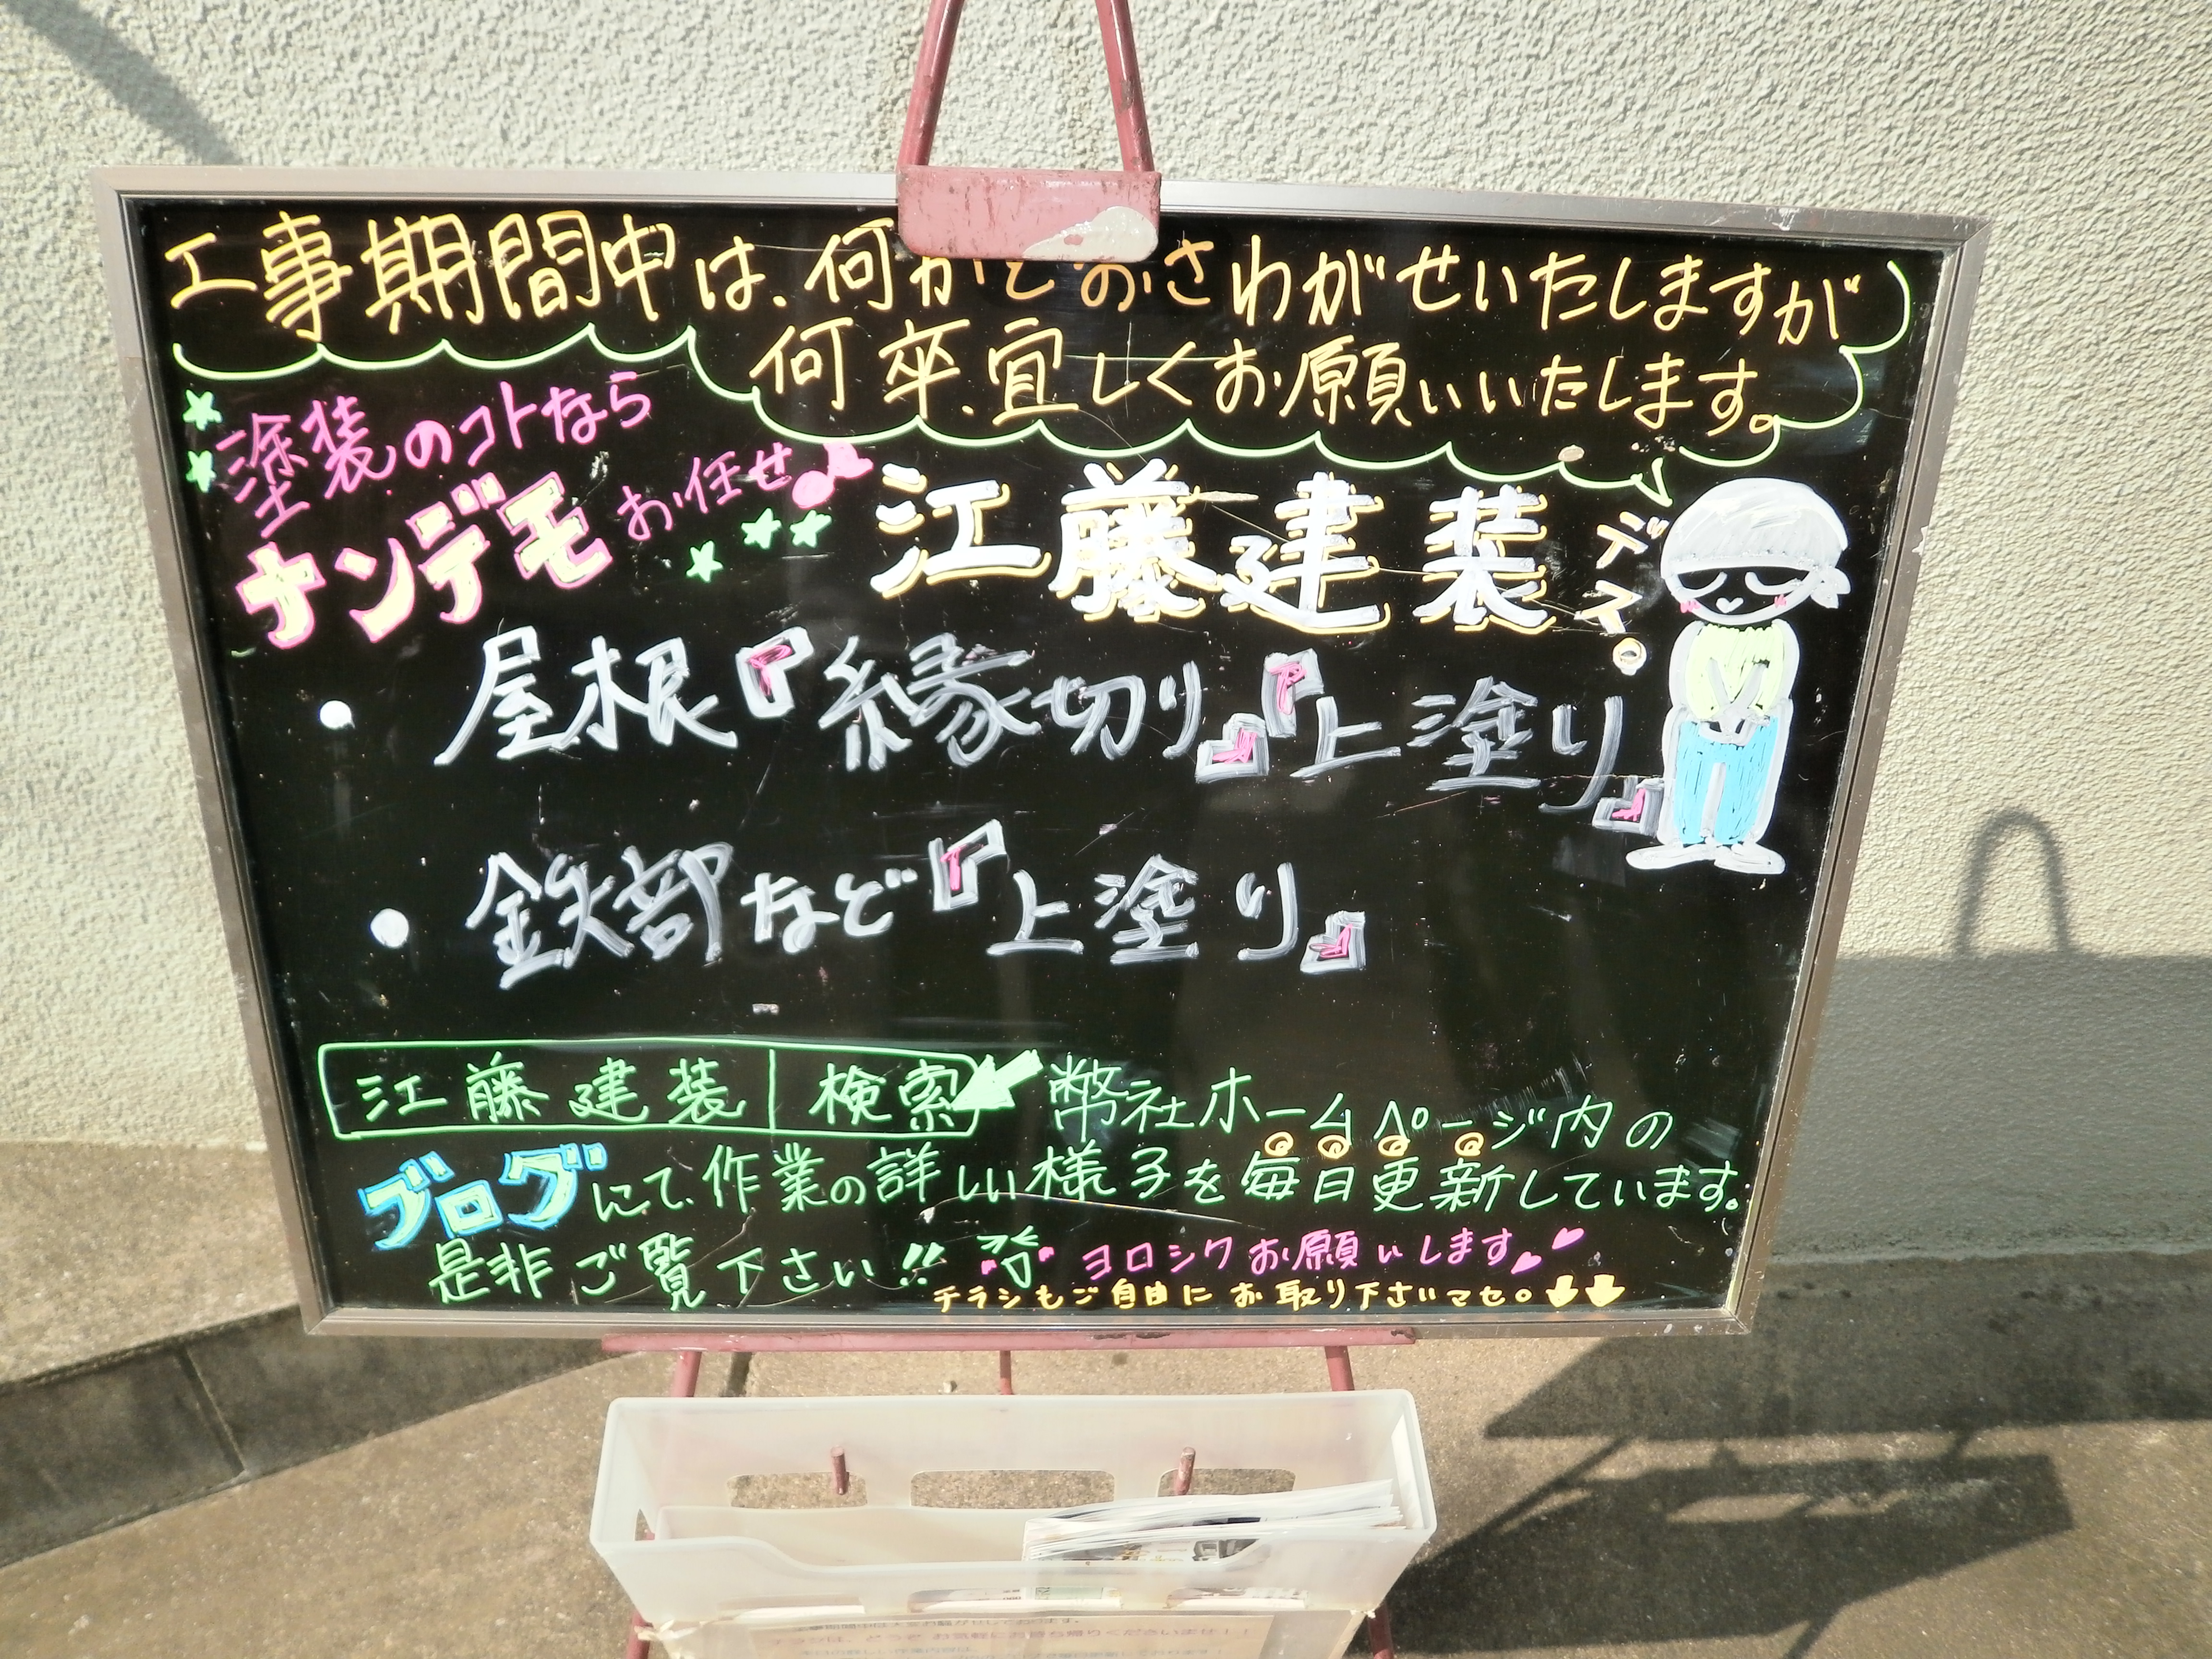 工事期間中は、何かとおさわがせいたしますが
何卒、宜しくお願いいたします。
塗装のコトなら
ナンデモお任せ♪
江藤建装デス。
・屋根『縁切り』『上塗り』
・鉄部など『上塗り』
江藤建装|検索 幣社ホームページ内の
ブログにて、作業の詳しい様子を毎日更新しています。
是非ご覧下さい!! ヨロシクお願いします
チラシもご自由にお取り下さいマセ。